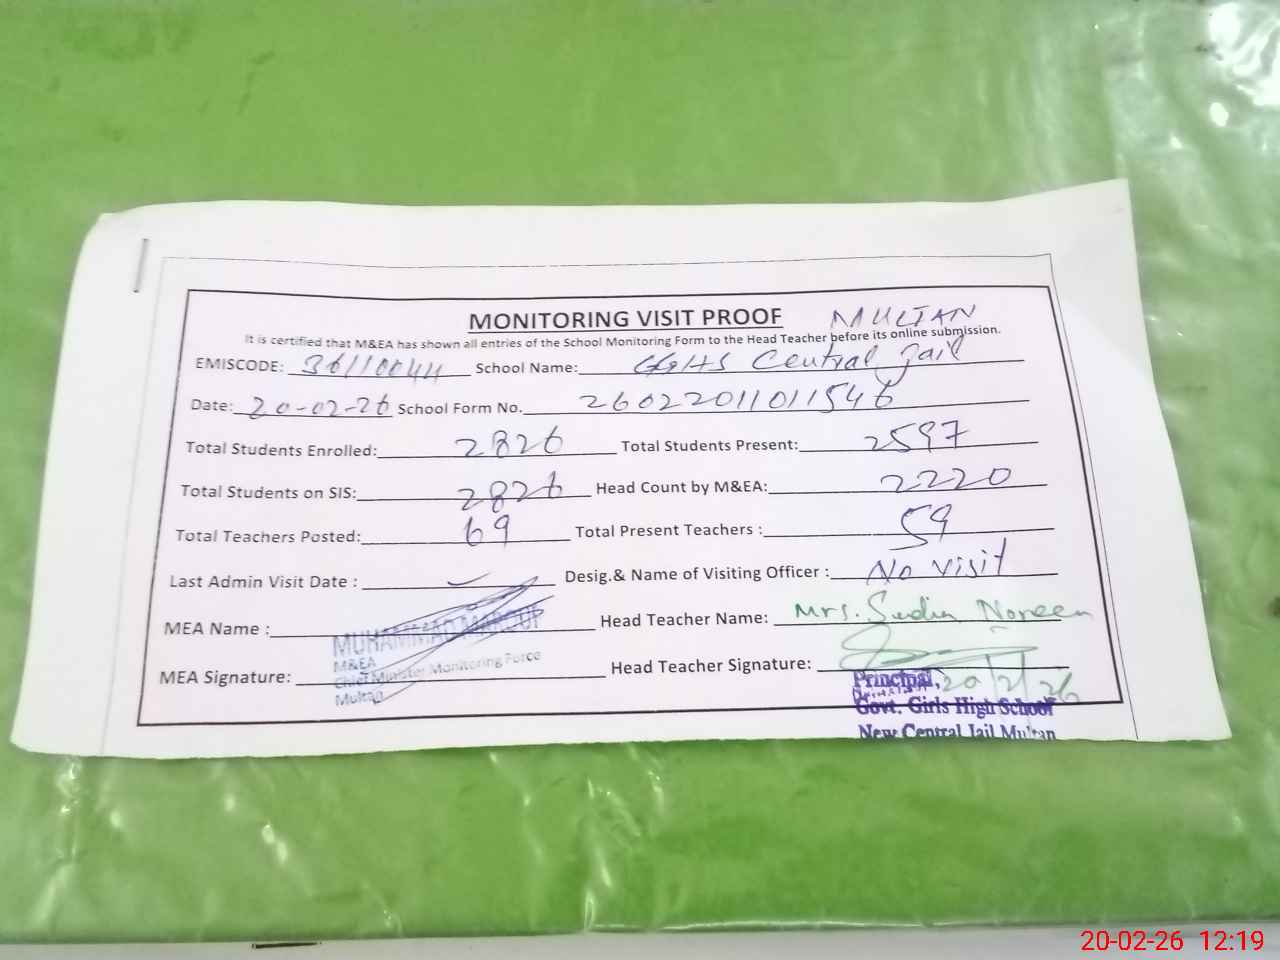 MONITORING VISIT PROOF MULTAN
It is certified that M&EA has shown all entries of the School Monitoring Form to the Head Teacher before its online submission.
EMISCODE: 36110044 School Name: GGHS Central Jail
Date: 20-02-26 School Form No. 26022011011546
Total Students Enrolled: 2826 Total Students Present: 2597
Total Students on SIS: 2826 Head Count by M&EA: 2220
Total Teachers Posted: 69 Total Present Teachers : 59
Last Admin Visit Date : Desig.& Name of Visiting Officer : No visit
MEA Name : MUHAMMAD Head Teacher Name: Mrs. Sadia Noreen
M&EA
MEA Signature: Chief Minister Monitoring Force Head Teacher Signature:
Multan
Principal, 20/2/26
Govt. Girls High School
New Central Jail Multan
20-02-26 12:19